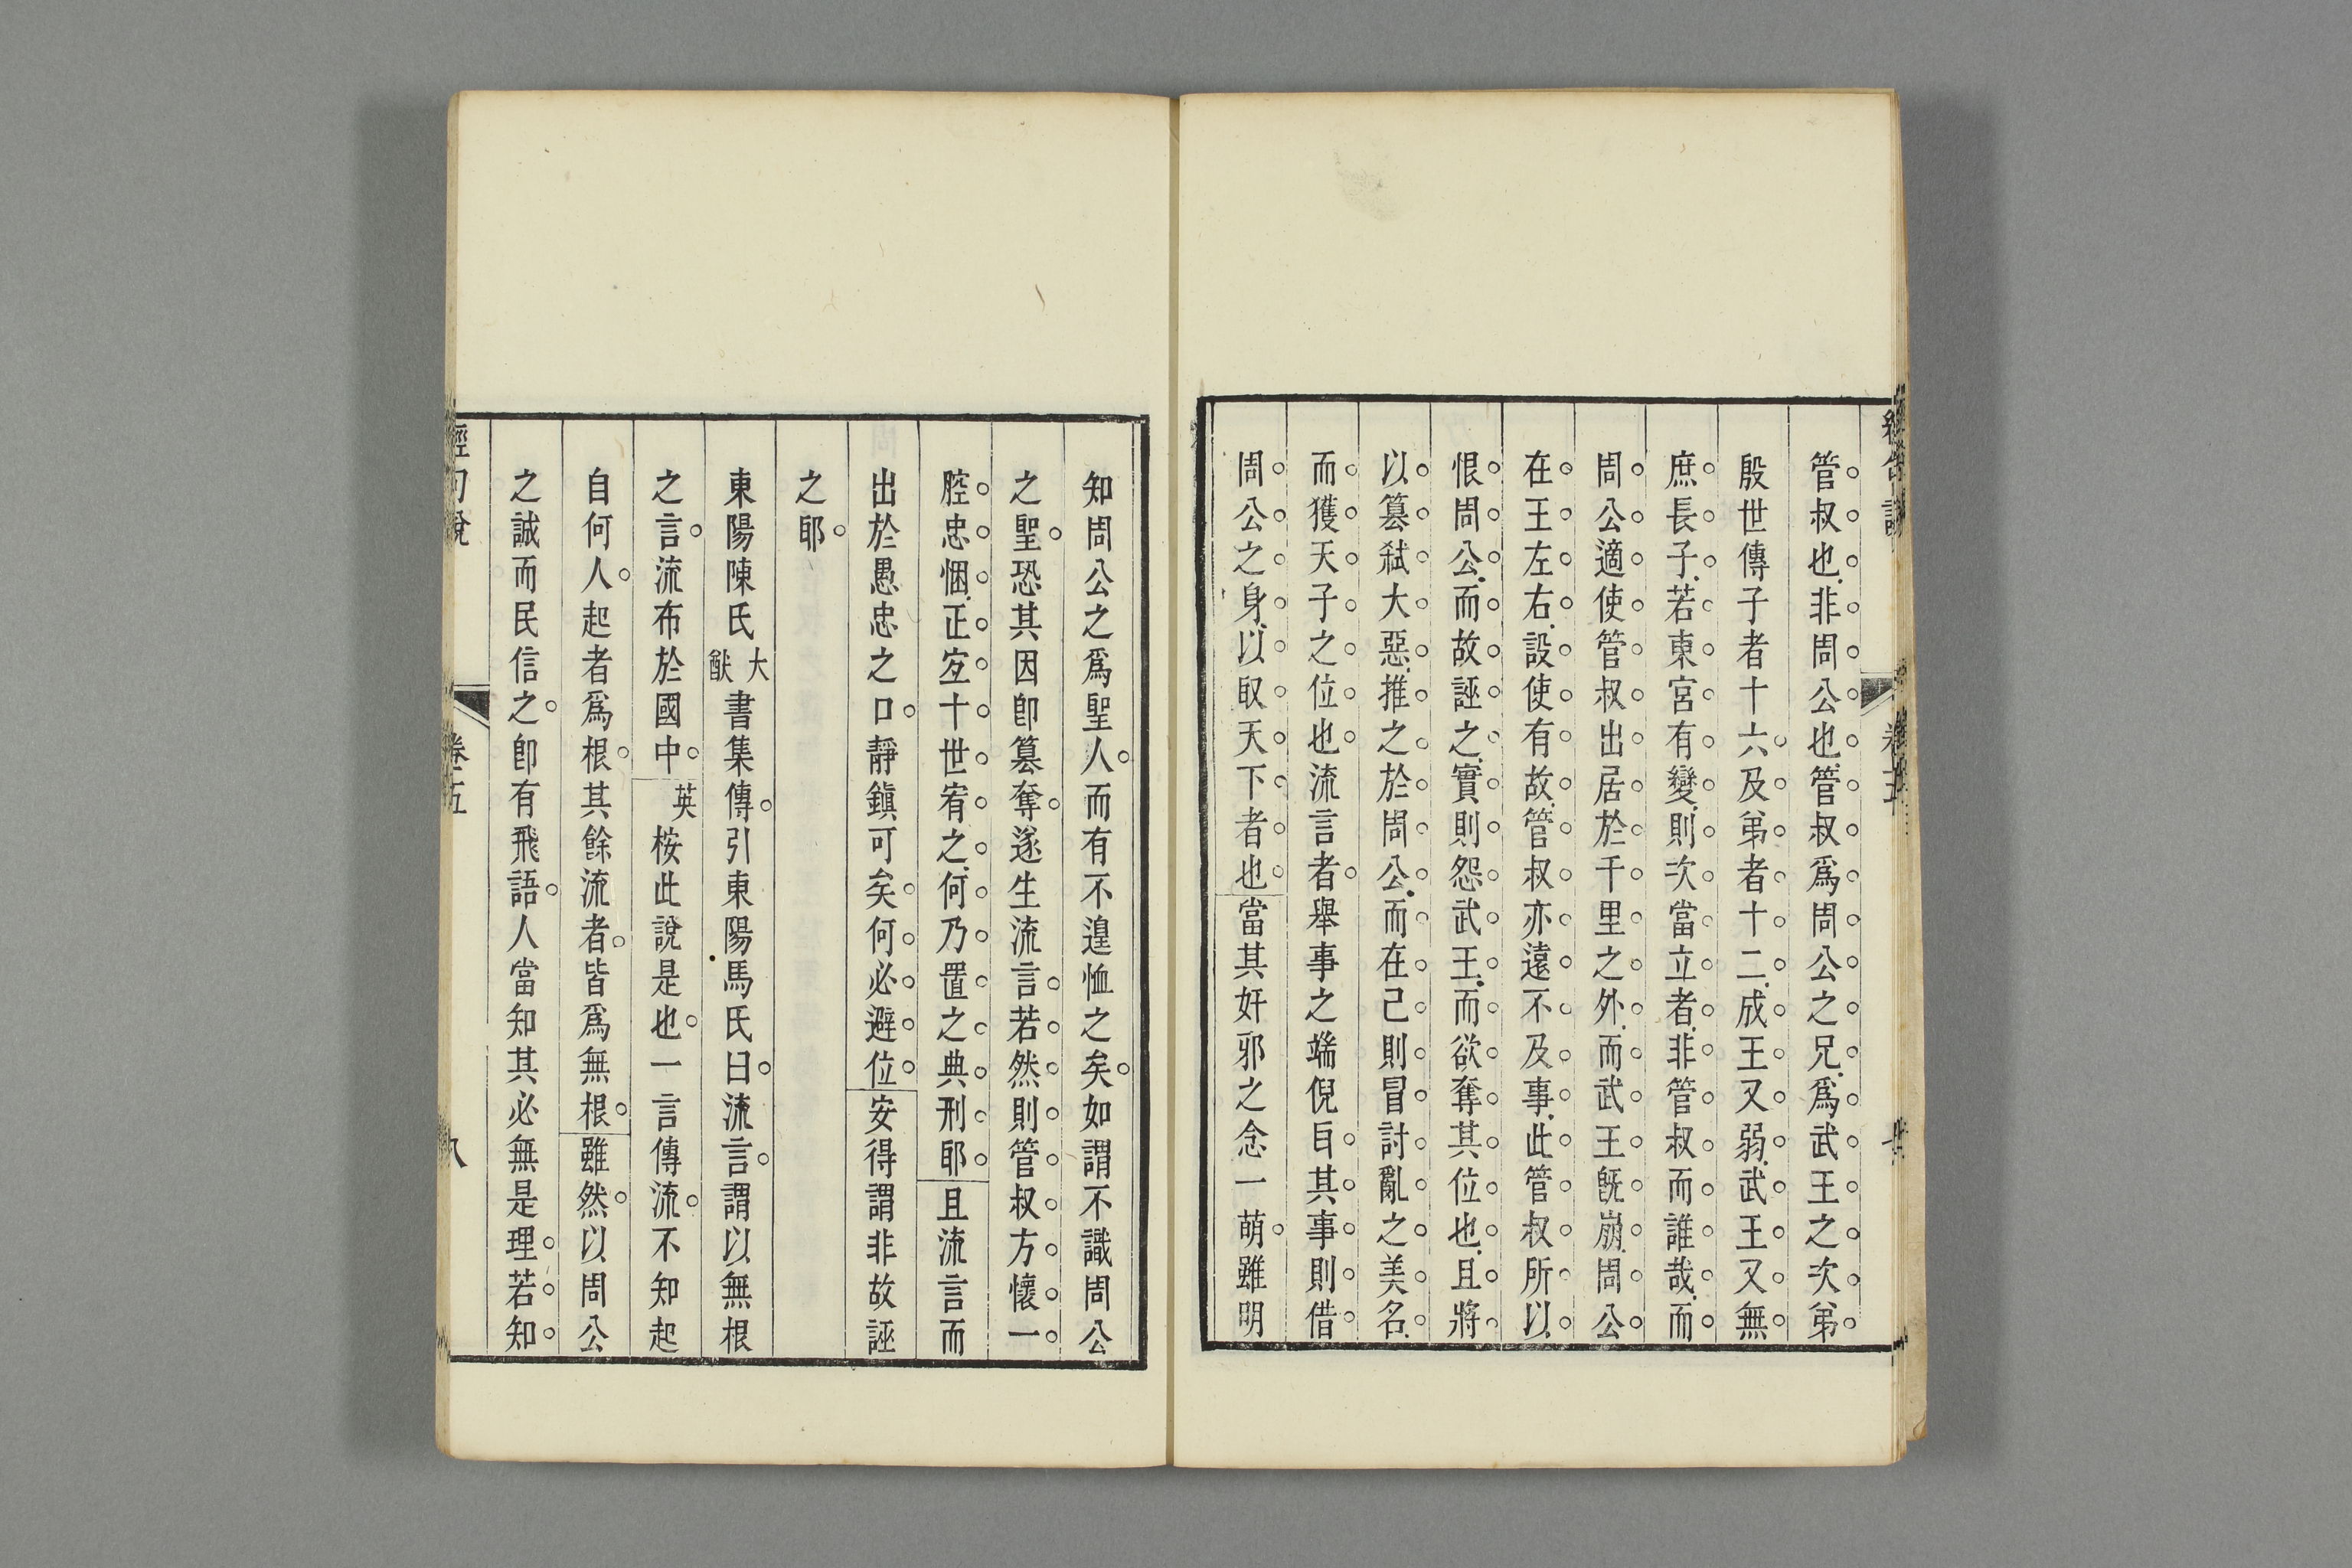 管叔也非周公也管叔爲周公之兄爲武王之次弟
殷世傳子者十六及弟者十二成王又弱武王又無
庶長子若東宮有變則次當立者非管叔而誰哉而
周公適使管叔出居於千里之外而武王旣崩周公
在王左右設使有故管叔亦遠不及事此管叔所以
恨周公而故誣之實則怨武王而欲奪其位也且將
以簒弑大惡推之於周公而在己則冒討亂之美名
而獲天子之位也流言者舉事之端倪㠯其事則借
周公之身以取天下者也當其奸邪之念一萌雖明
知周公之爲聖人而有不遑恤之矣如謂不識周公
之聖恐其因卽簒奪遂生流言若然則管叔方懷一
腔忠悃正宐十世宥之何乃置之典刑耶且流言而
出於愚忠之口靜鎭可矣何必避位安得謂非故誣
之耶
東陽陳氏大猷書集傳引東陽馬氏曰流言謂以無根
之言流布於國中英桉此說是也一言傳流不知起
自何人起者爲根其餘流者皆爲無根雖然以周公
之誠而民信之卽有飛語人當知其必無是理若知
卷五